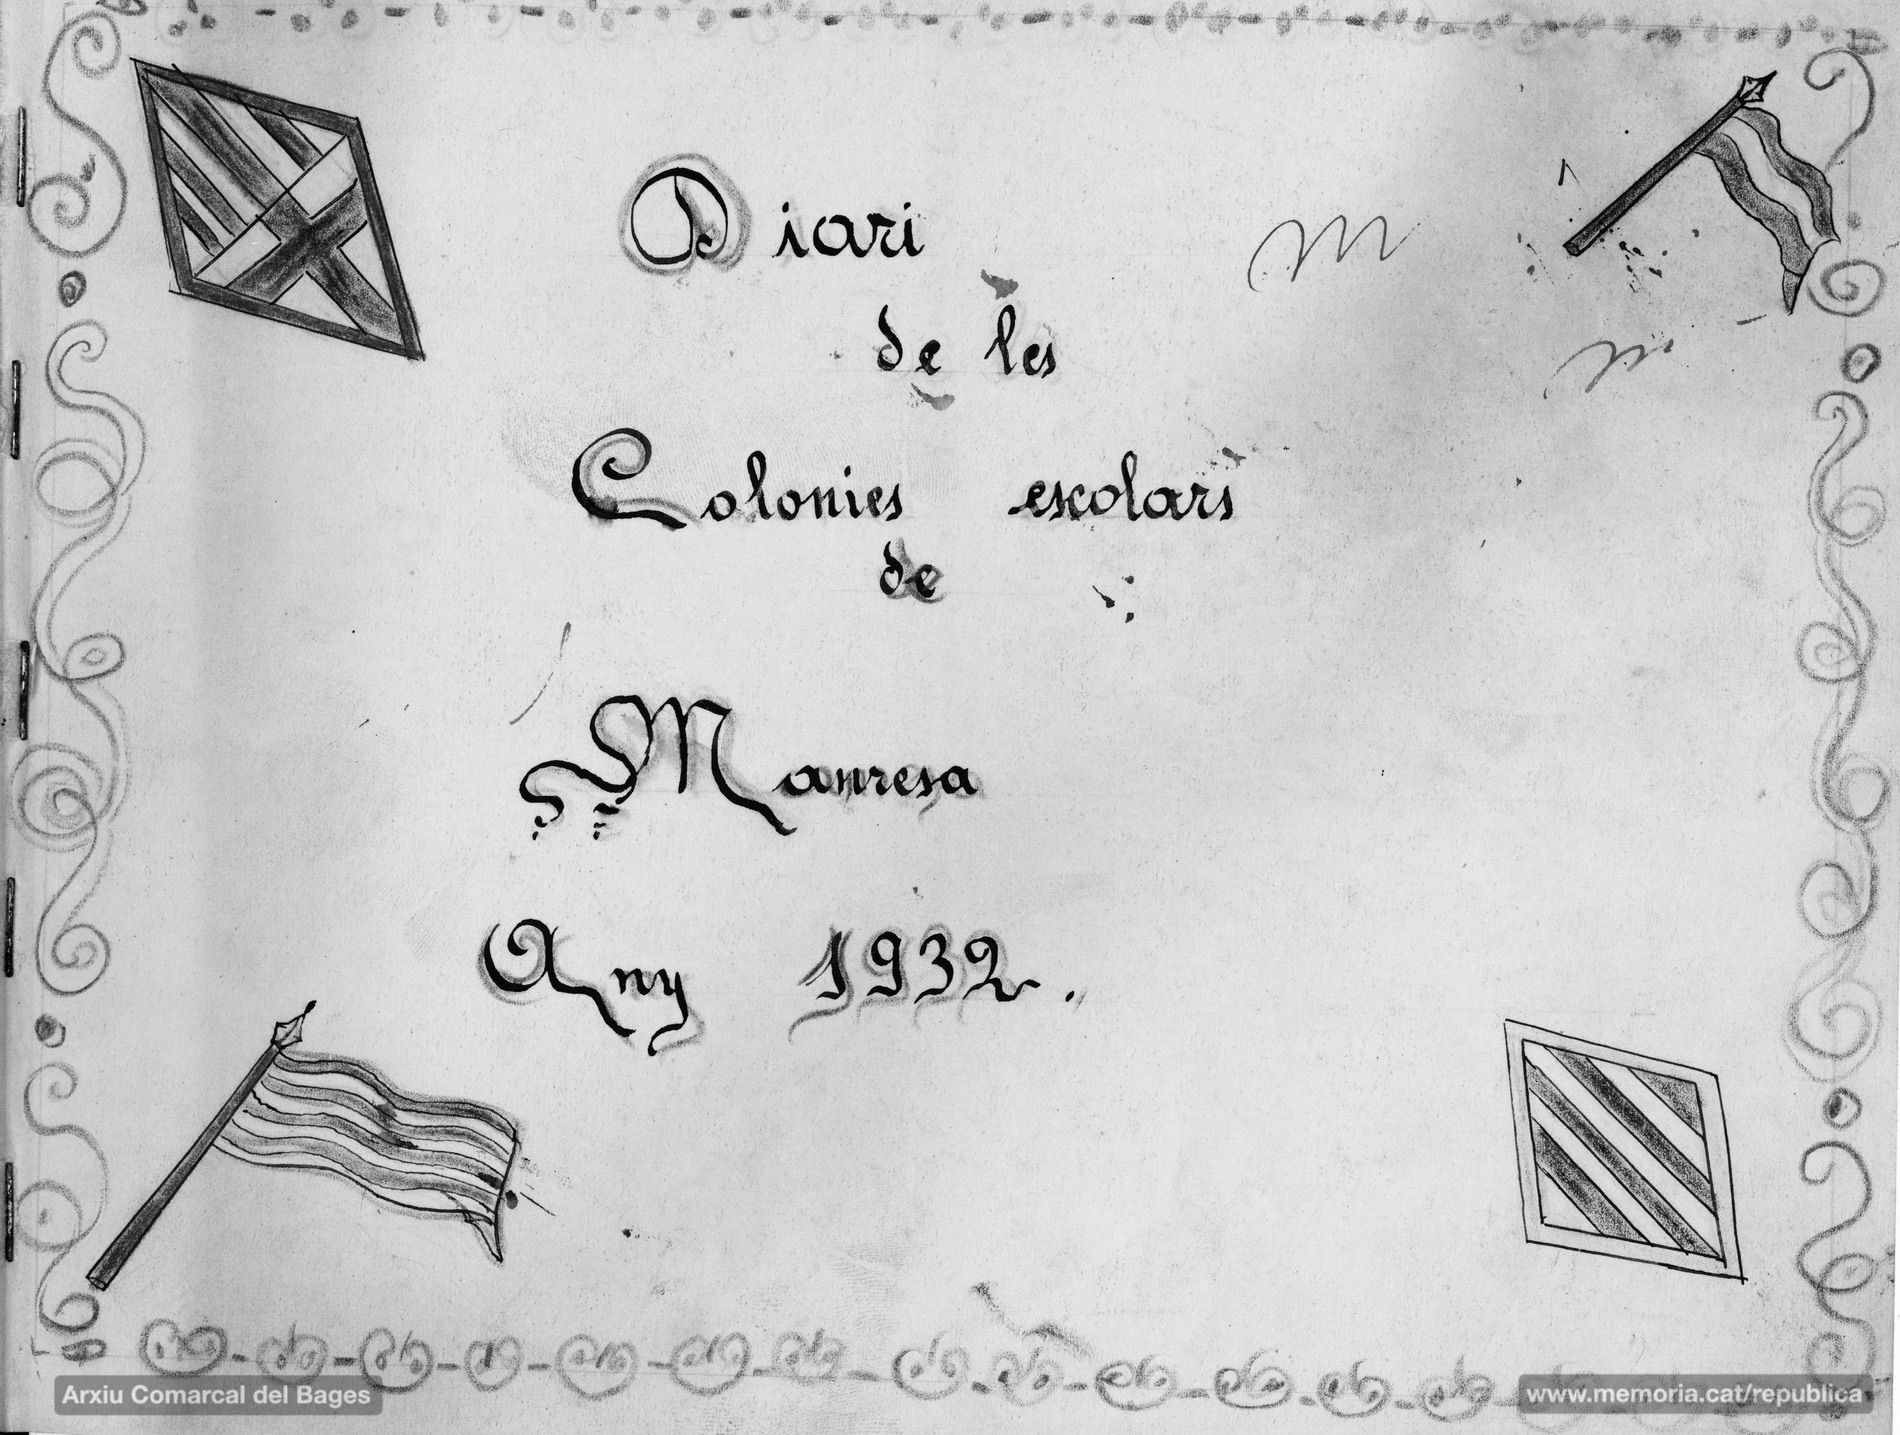 Diari
de les
Colonies escolars
de
Manresa
Any 1932.
Arxiu Comarcal del Bages
www.memoria.cat/republica